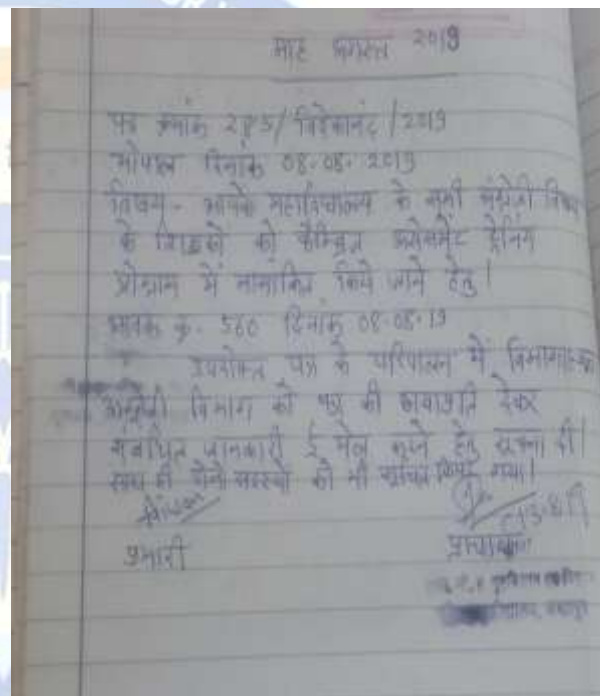 माह अगस्त 2019
पत्र क्रमांक 285/ विवेकानंद / 2019
भोपाल दिनांक 08-08-2019
विषय - आपके महाविद्यालय के सभी अंग्रेजी विषय
के शिक्षकों को कैम्ब्रिज असेसमेंट ट्रेनिंग
प्रोग्राम में नामांकित किये जाने हेतु।
आवक क्र. 560 दिनांक 08-08-19
उपरोक्त पत्र के परिपालन में विभागाध्यक्ष
अंग्रेजी विभाग को पत्र की छायाप्रति देकर
संबंधित जानकारी ई मेल करने हेतु सूचना दी।
साथ ही दोनों सदस्यों को भी सूचित किया गया।
प्रभारी
प्राचार्य